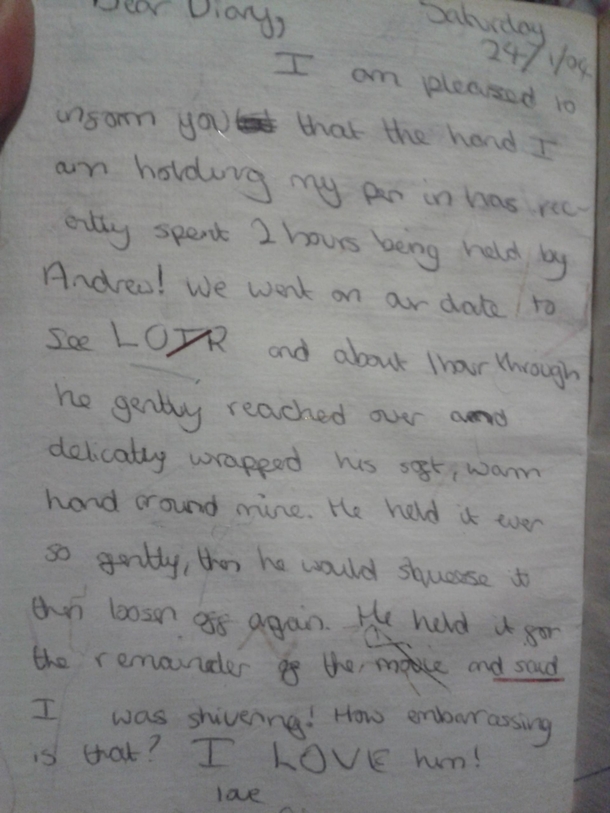 Dear Diary,
Saturday
24/1/04
I am pleased to
inform you that the hand I
am holding my pen in has rec-
ently spent 2 hours being held by
Andrew! We went on our date to
see LOTR and about 1 hour through
he gently reached over and
delicatly wrapped his soft, warm
hand around mine. He held it ever
so gently, then he would squeese it
then loosen off again. He held it for
the remainder of the movie and said
I was shivering! How embarassing
is that? I LOVE him!
love